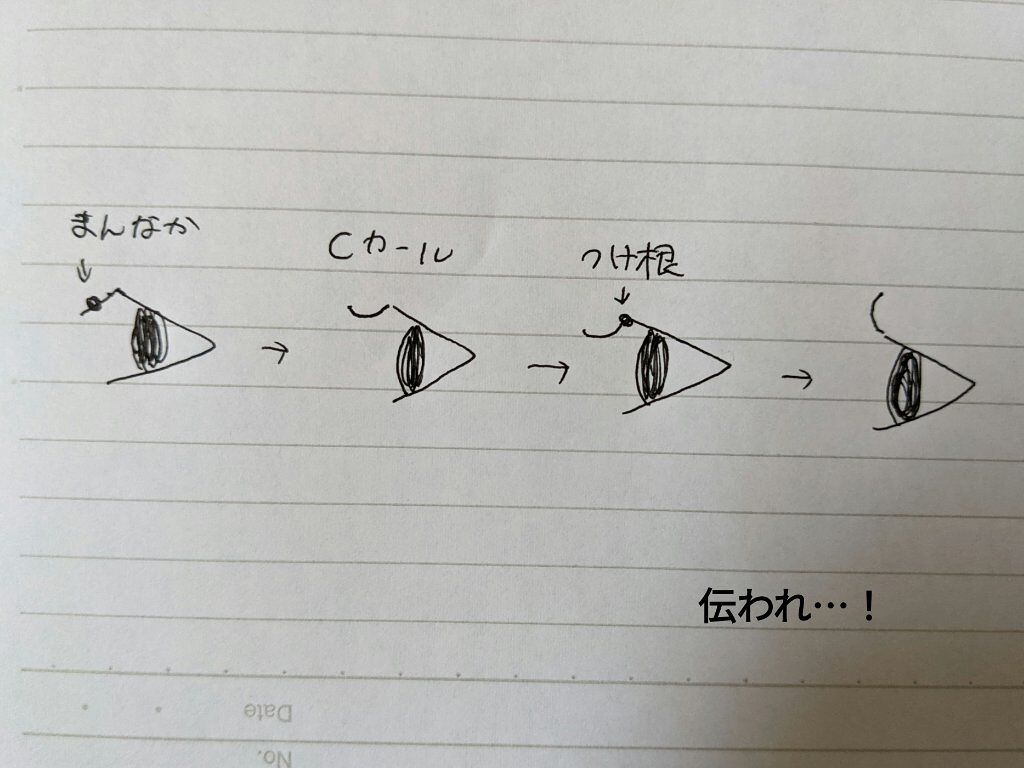 まんなか
Cカール
つけ根
伝われ…！
Date
No.